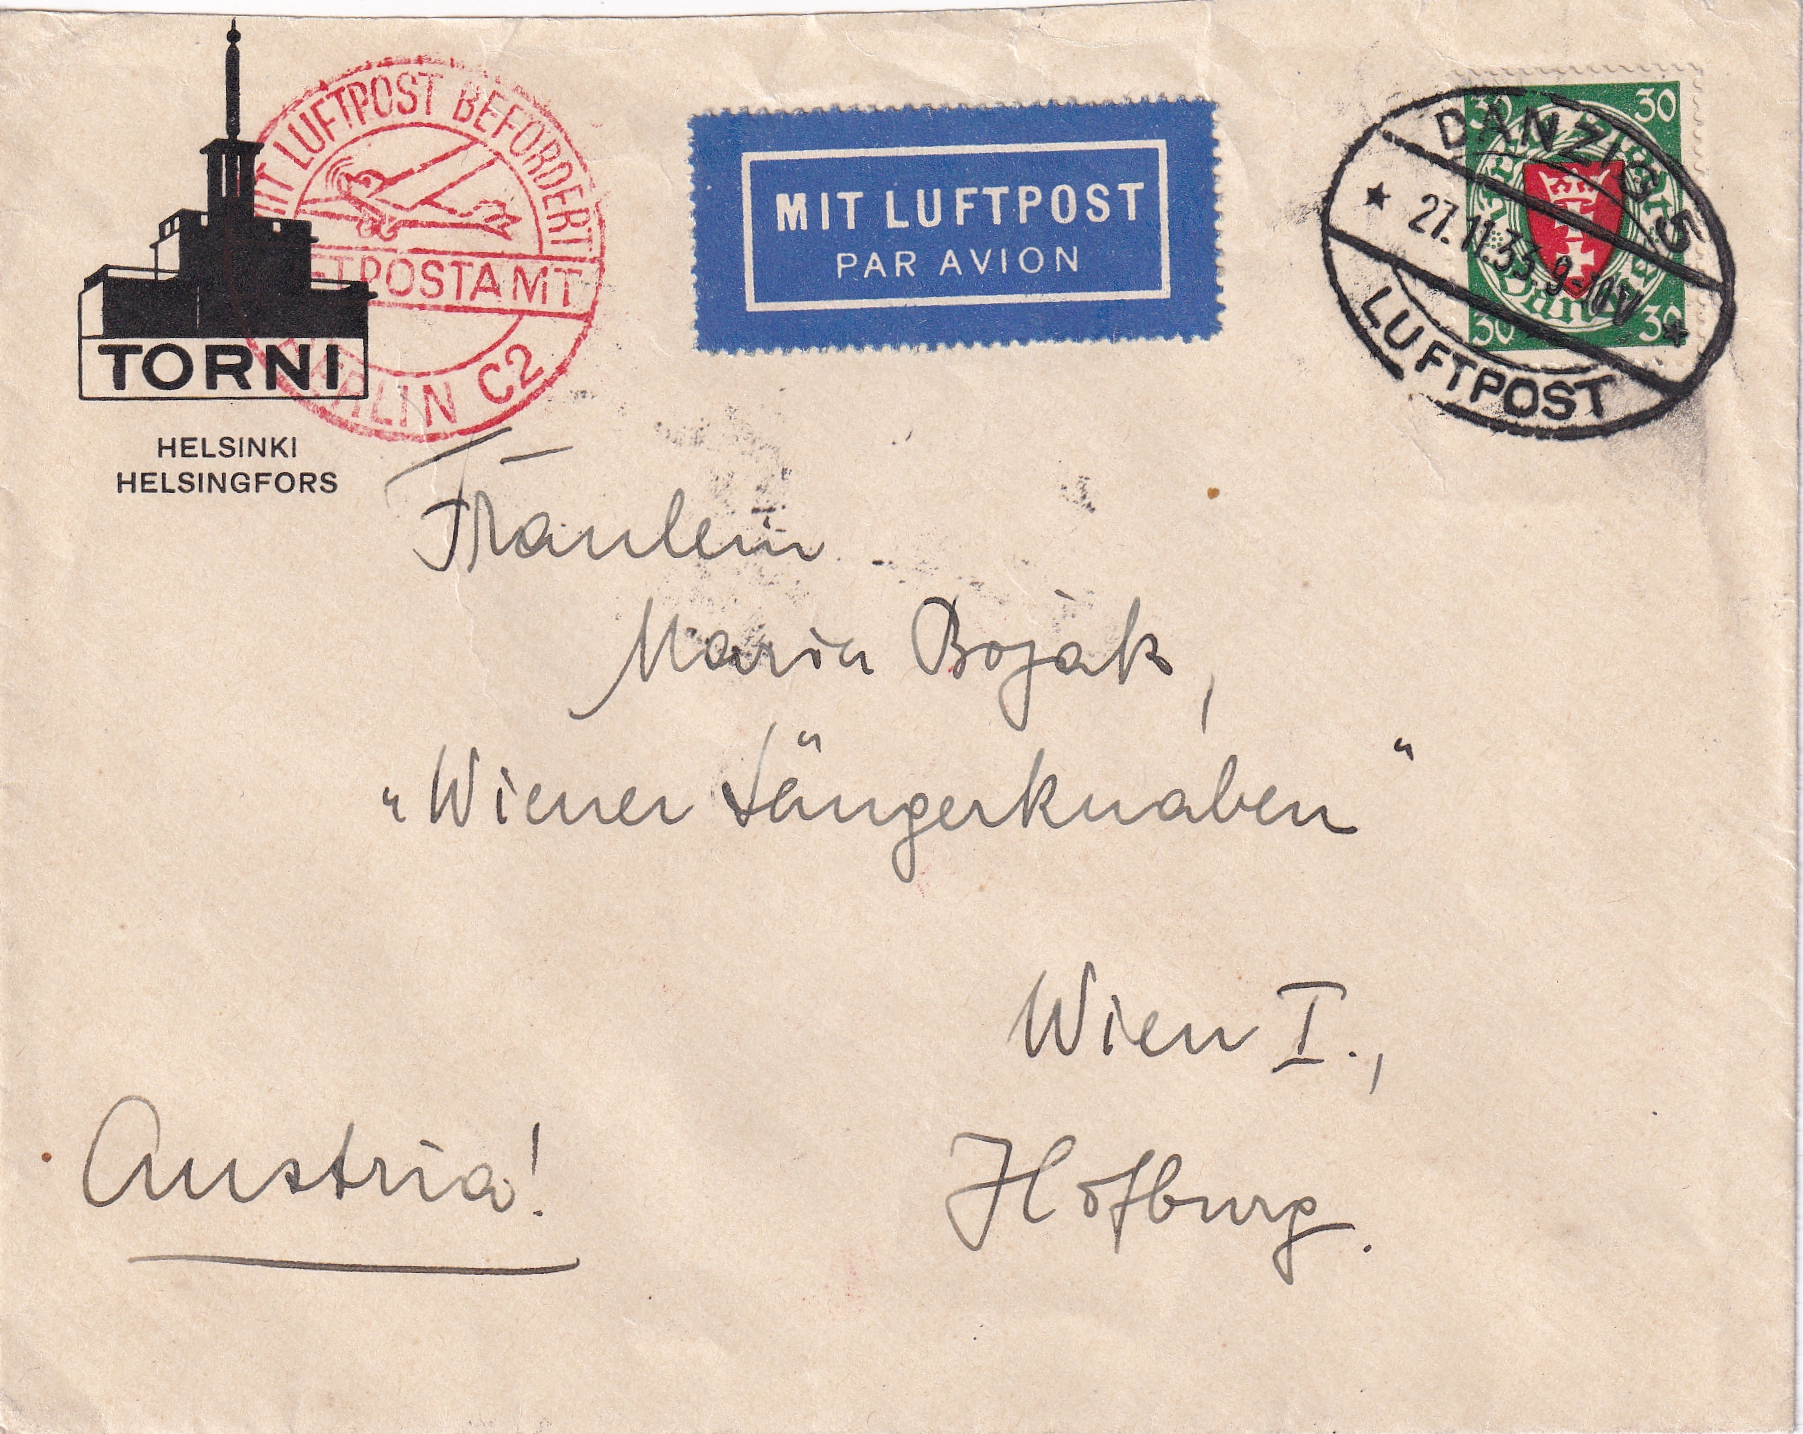 TORNI
HELSINKI
HELSINGFORS
MIT LUFTPOST BEFÖRDERT
LUFTPOSTAMT
BERLIN C2
MIT LUFTPOST
PAR AVION
DANZIG 5
27.11.33.9-10V
LUFTPOST
30 30
30 30
Fräulein
Maria Bojak,
„Wiener Sängerknaben“
Wien I.,
Hofburg.
Austria!